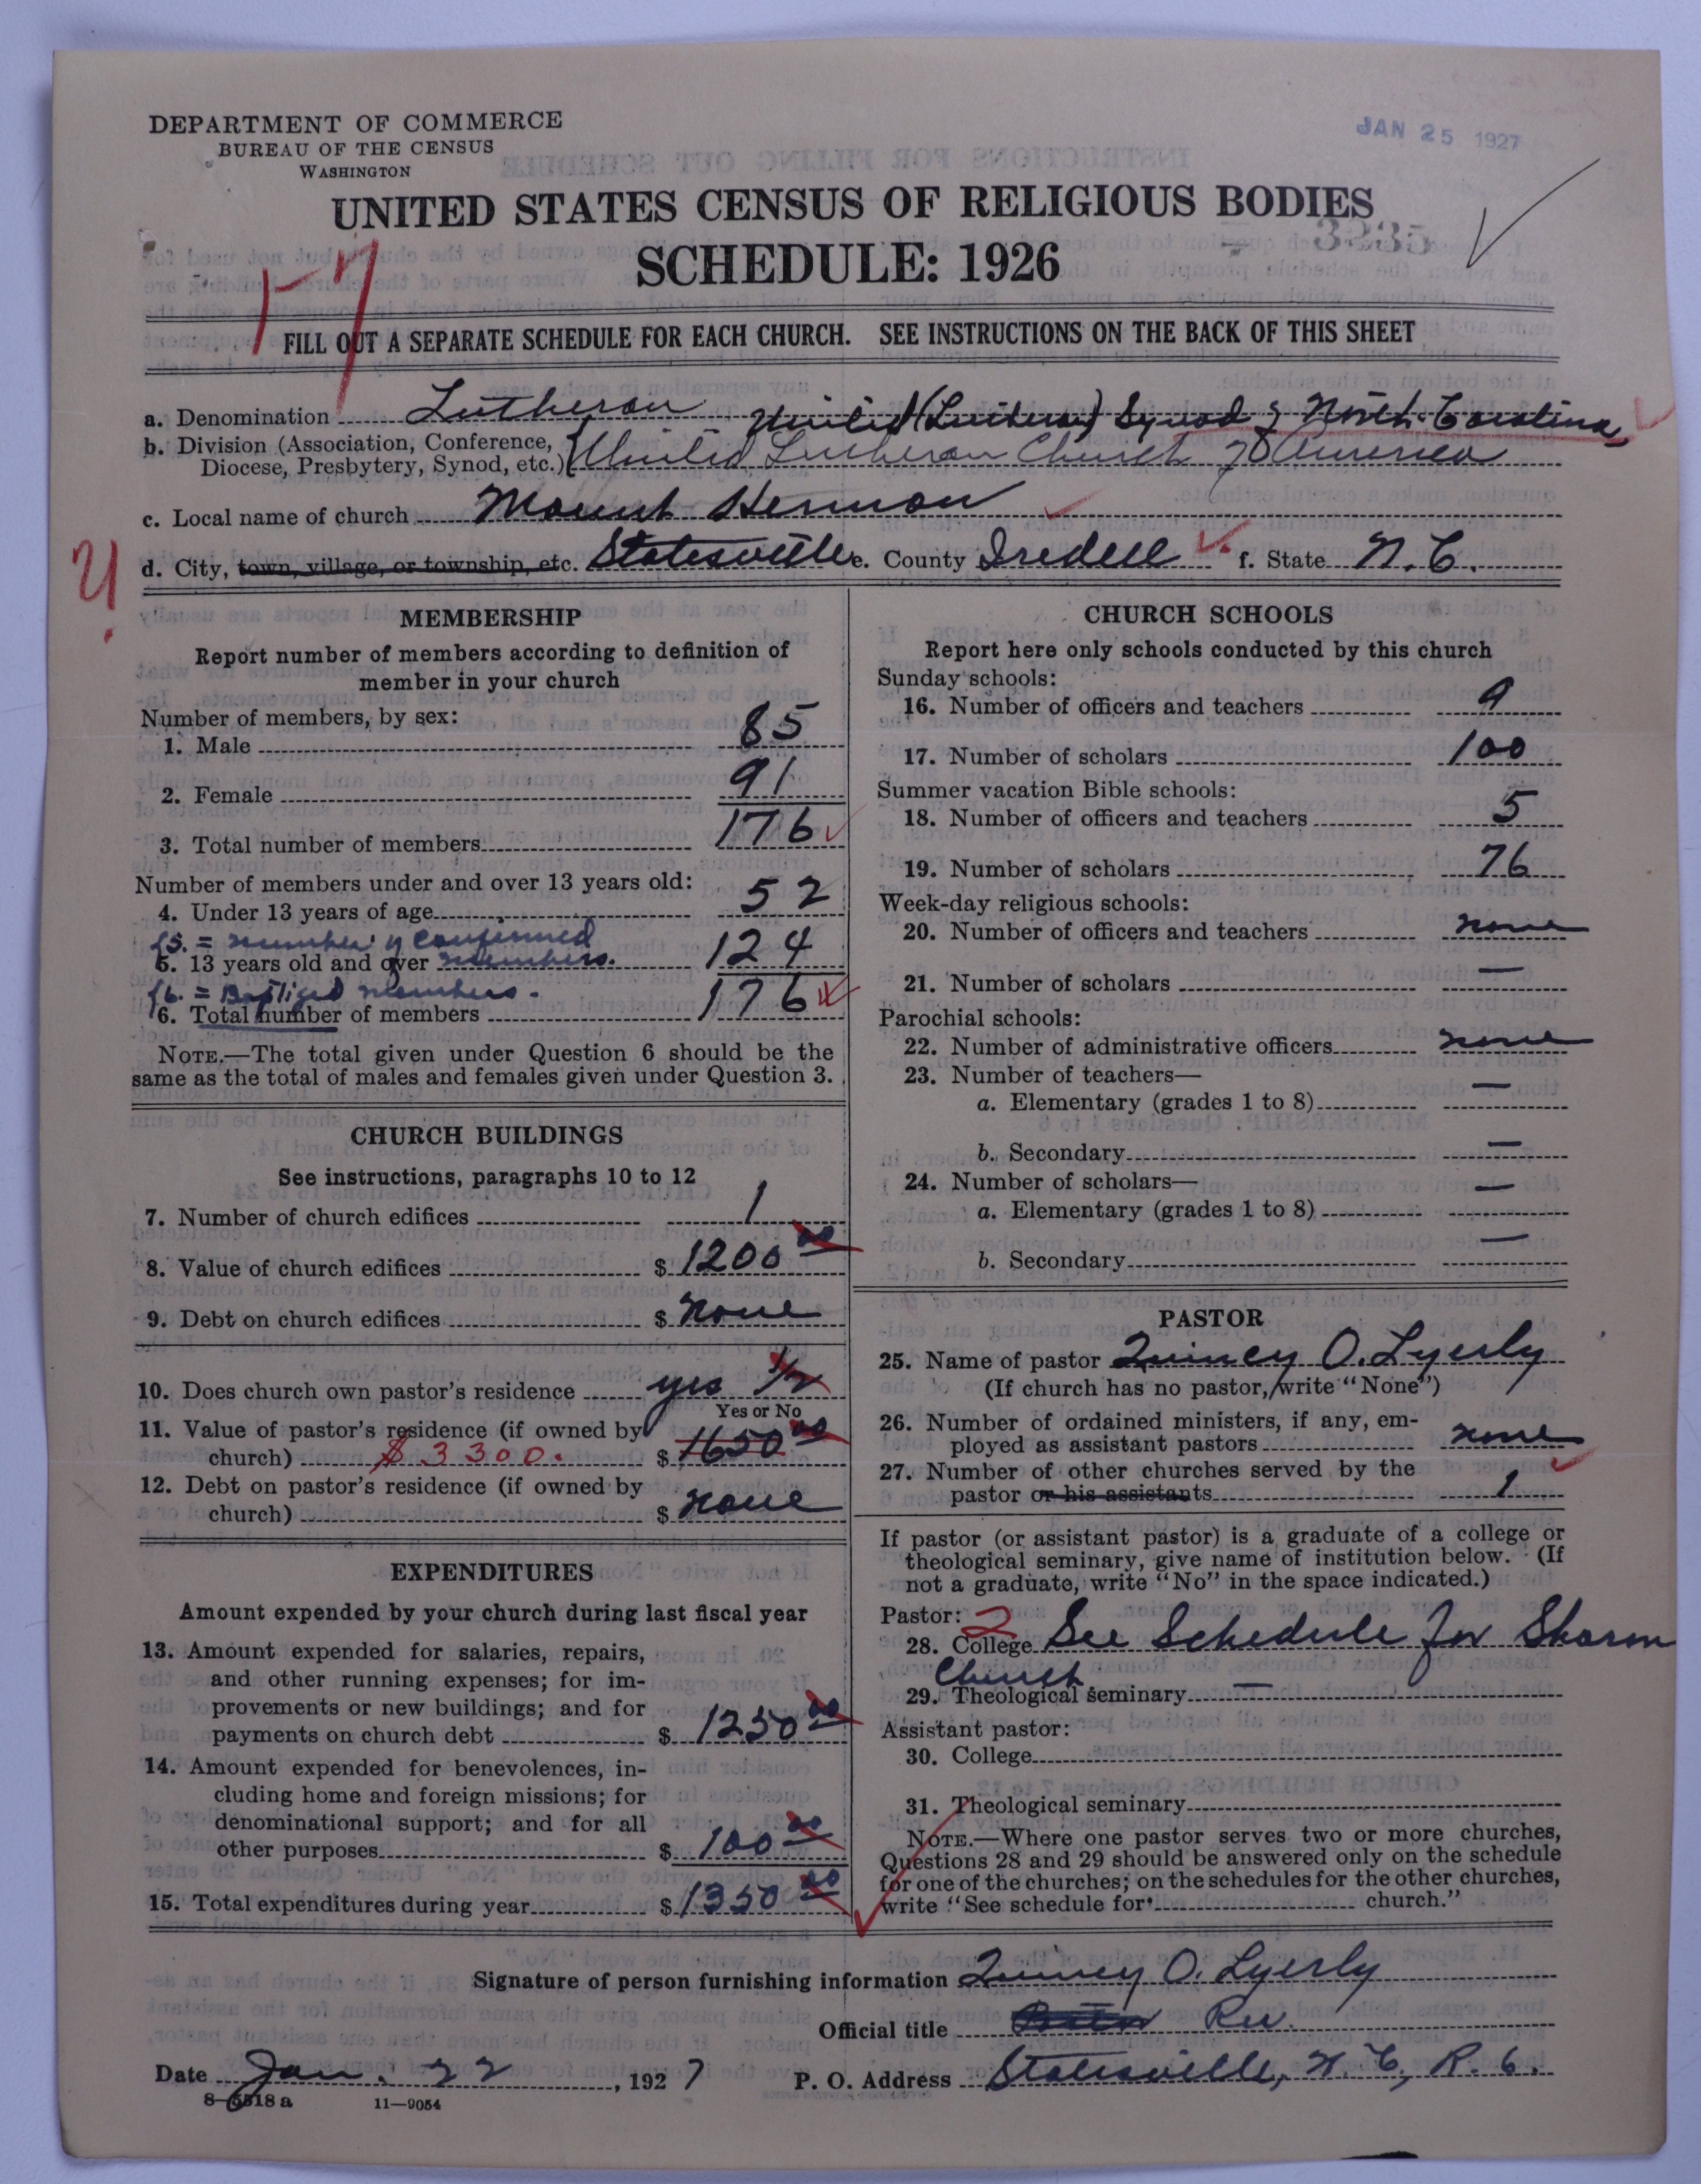 DEPARTMENT OF COMMERCE
BUREAU OF THE CENSUS
WASHINGTON
JAN 25 1927
UNITED STATES CENSUS OF RELIGIOUS BODIES
3235
SCHEDULE: 1926
FILL OUT A SEPARATE SCHEDULE FOR EACH CHURCH. SEE INSTRUCTIONS ON THE BACK OF THIS SHEET
a. Denomination Lutheran United (Lutheran) Synod of North Carolina
b. Division (Association, Conference,
Diocese, Presbytery, Synod, etc.) United Lutheran Church of America
c. Local name of church Mount Hermon
d. City, town, village, or township, etc. Statesville e. County Iredell f. State N. C.
MEMBERSHIP
Report number of members according to definition of
member in your church
Number of members, by sex:
1. Male 85
2. Female 91
3. Total number of members 176
Number of members under and over 13 years old:
4. Under 13 years of age 52
5. = number of confirmed
5. 13 years old and over members. 124
6. = Baptized members.
6. Total number of members 176
NOTE.—The total given under Question 6 should be the
same as the total of males and females given under Question 3.
CHURCH BUILDINGS
See instructions, paragraphs 10 to 12
7. Number of church edifices 1
8. Value of church edifices $ 1200 00
9. Debt on church edifices $ none
10. Does church own pastor's residence yes 1/2
Yes or No
11. Value of pastor's residence (if owned by
church) $3300. $ 1650 00
12. Debt on pastor's residence (if owned by
church) $ none
EXPENDITURES
Amount expended by your church during last fiscal year
13. Amount expended for salaries, repairs,
and other running expenses; for im-
provements or new buildings; and for
payments on church debt $ 1250 00
14. Amount expended for benevolences, in-
cluding home and foreign missions; for
denominational support; and for all
other purposes $ 100 00
15. Total expenditures during year $ 1350 00
CHURCH SCHOOLS
Report here only schools conducted by this church
Sunday schools:
16. Number of officers and teachers 9
17. Number of scholars 100
Summer vacation Bible schools:
18. Number of officers and teachers 5
19. Number of scholars 76
Week-day religious schools:
20. Number of officers and teachers none
21. Number of scholars —
Parochial schools:
22. Number of administrative officers none
23. Number of teachers—
a. Elementary (grades 1 to 8) —
b. Secondary —
24. Number of scholars—
a. Elementary (grades 1 to 8) —
b. Secondary —
PASTOR
25. Name of pastor Quincy O. Lyerly
(If church has no pastor, write "None")
26. Number of ordained ministers, if any, em-
ployed as assistant pastors none
27. Number of other churches served by the
pastor or his assistants 1
If pastor (or assistant pastor) is a graduate of a college or
theological seminary, give name of institution below. (If
not a graduate, write "No" in the space indicated.)
Pastor: 2
28. College See Schedule for Sharon
Church
29. Theological seminary —
Assistant pastor:
30. College
31. Theological seminary
NOTE.—Where one pastor serves two or more churches,
Questions 28 and 29 should be answered only on the schedule
for one of the churches; on the schedules for the other churches,
write "See schedule for church."
Signature of person furnishing information Quincy O. Lyerly
Official title Rev.
Date Jan. 22, 1927 P. O. Address Statesville, N. C., R. 6.
8-6518 a 11—9054